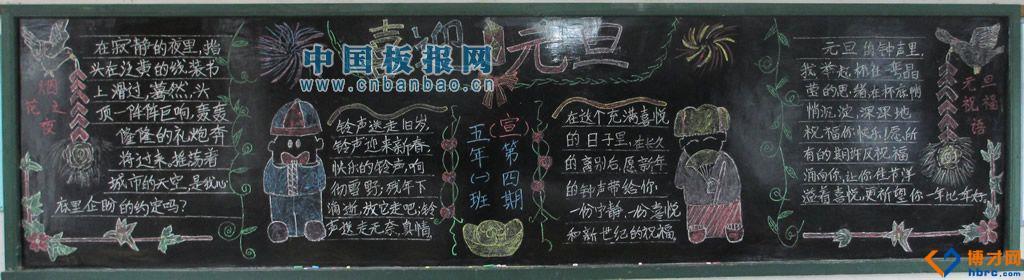 喜迎元旦
中国板报网
www.cnbanbao.cn
烟花之夜
在寂静的夜里,指
头在泛黄的线装书
上滑过,蓦然,头
顶一阵阵巨响,轰轰
隆隆的礼炮奔
将过来,摇荡着
城市的天空,是我心
底里企盼的约定吗?
铃声送走旧岁,
铃声迎来新春,
快乐的铃声,响
彻雪野;残年下
消逝,放它走吧;铃
声送走无奈,真情,
五年(一)班
(宣)第四期
在这个充满喜悦
的日子里,在长久
的离别后,愿新年
的钟声带给你,
一份宁静,一份喜悦
和新世纪的祝福,
元旦祝福语
元旦的钟声里,
我举起杯,在晶
莹的思绪,在杯底悄
悄沉淀,深深地
祝福你快乐!愿所
有的期许及祝福
涌向你,让你佳节洋
溢着喜悦,更祈望你一年比一年好,
博才网
hbrc.com